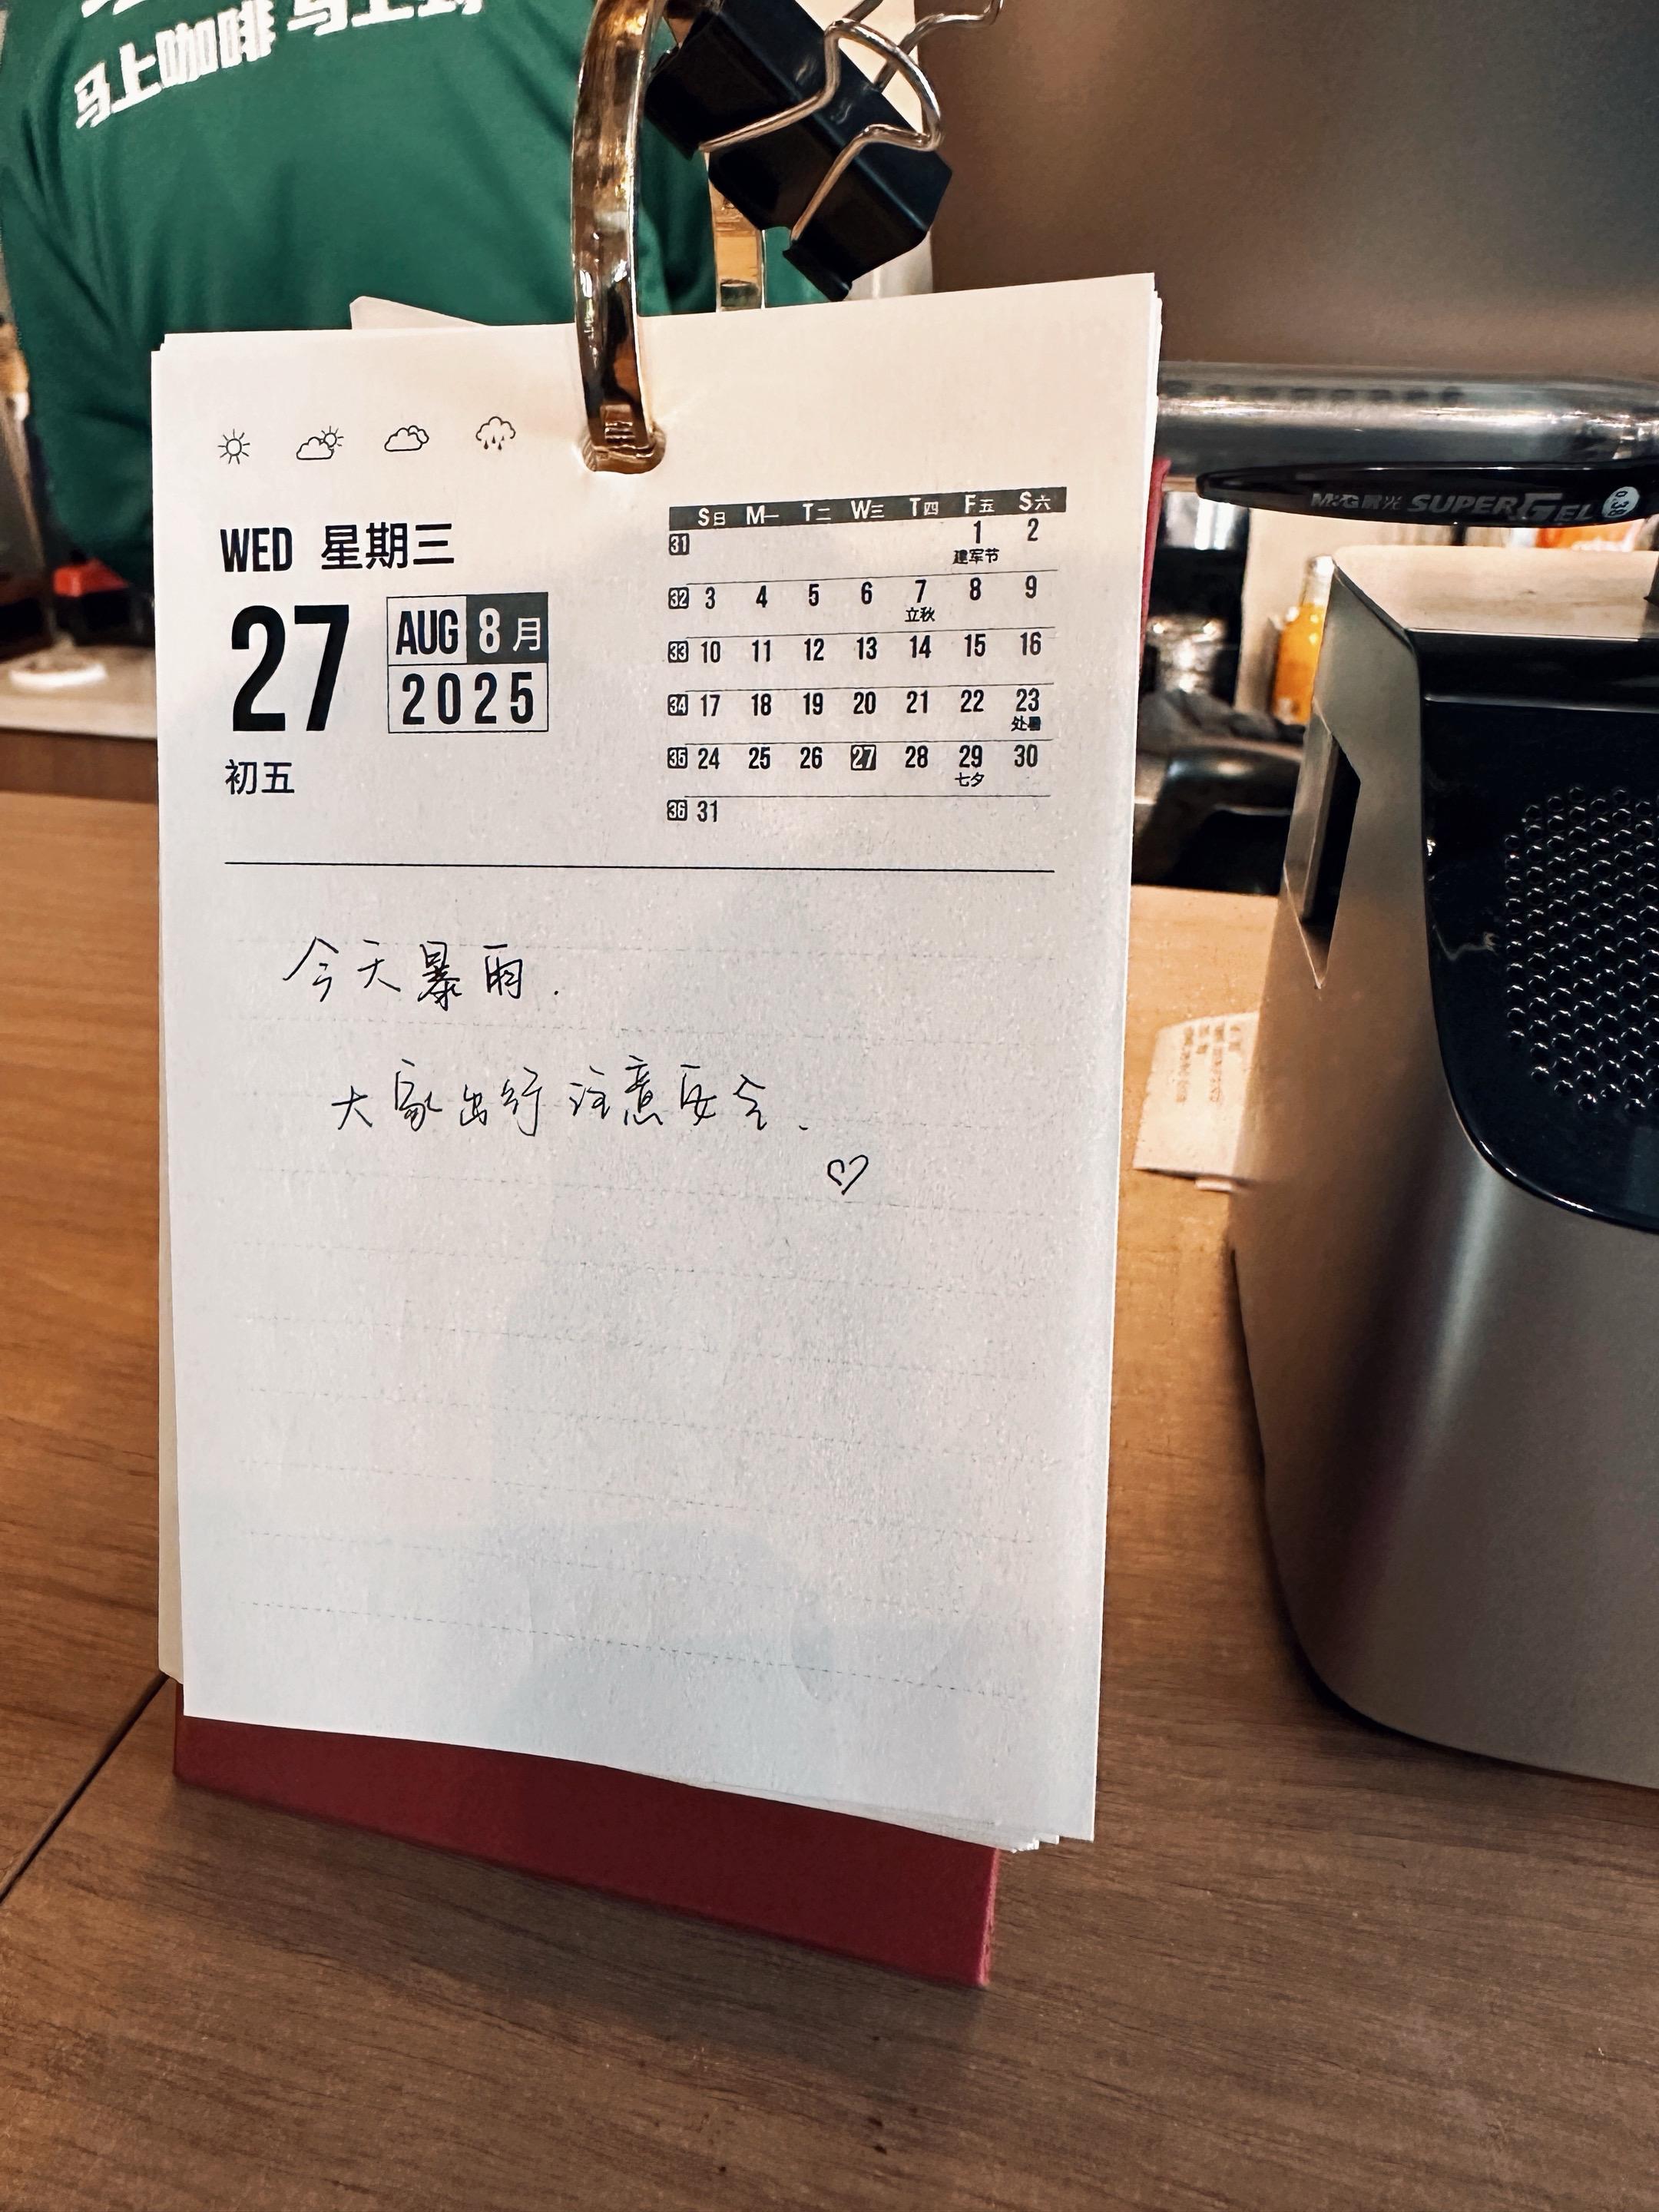 马上咖啡 马上到
WED 星期三
27
AUG 8月
2025
初五
S日 M一 T二 W三 T四 F五 S六
31 1 2
建军节
32 3 4 5 6 7 8 9
立秋
33 10 11 12 13 14 15 16
34 17 18 19 20 21 22 23
处暑
35 24 25 26 27 28 29 30
七夕
36 31
今天暴雨.
大家出行注意安全.
M&G晨光 SUPER GEL 0.38